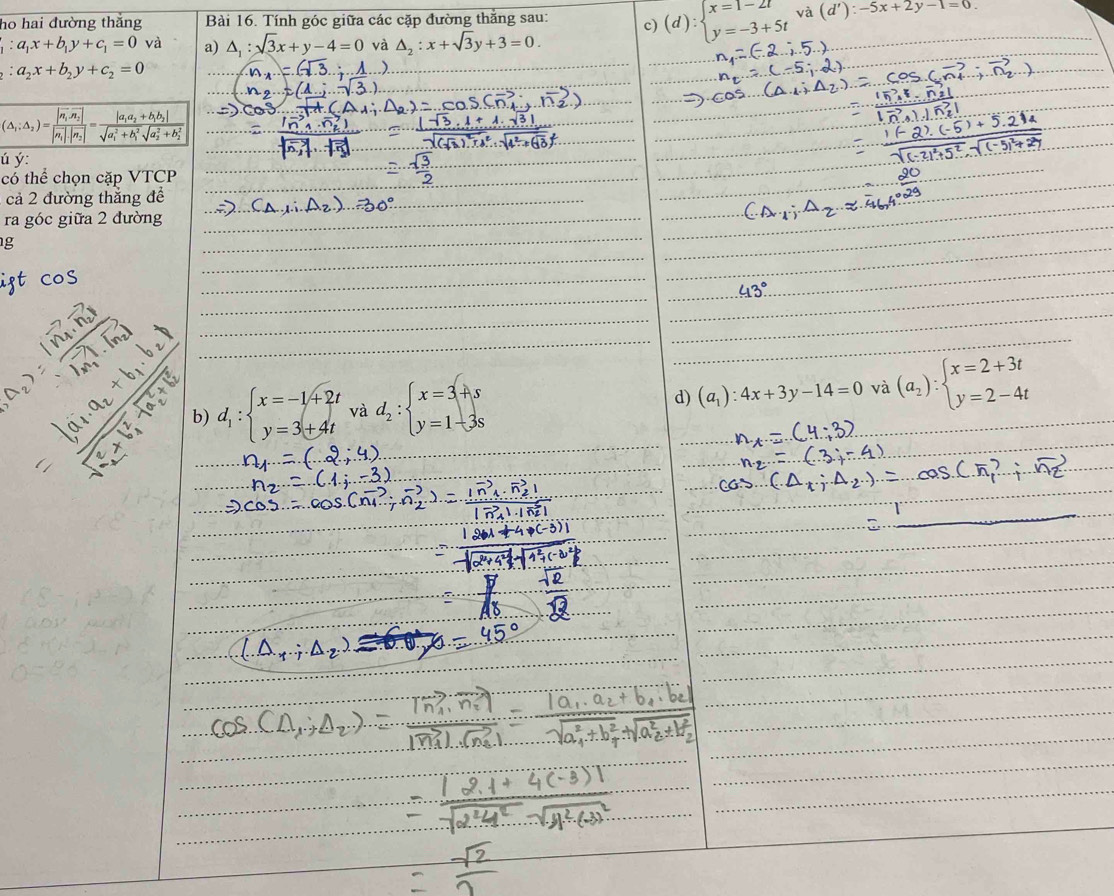 ho hai đường thẳng
: a₁x + b₁y + c₁ = 0 và
: a₂x + b₂y + c₂ = 0
(Δ₁;Δ₂) = |n₁.n₂| / |n₁|.|n₂| = |a₁a₂ + b₁b₂| / √a₁² + b₁² √a₂² + b₂²
ú ý:
có thể chọn cặp VTCP
cả 2 đường thẳng để
ra góc giữa 2 đường
cos
Δ₂) = |n₁.n₂| / |n₁|.|n₂|
= |a₁.a₂ + b₁.b₂|
Bài 16. Tính góc giữa các cặp đường thẳng sau:
a) Δ₁ : √3x + y − 4 = 0 và Δ₂ : x + √3y + 3 = 0.
n₁ = (√3 ; 1)
n₂ = (1 ; √3)
=> cos (Δ₁; Δ₂) = cos (n₁ ; n₂)
= |n₁.n₂| / |n₁|.|n₂| = |√3.1 + 1.√3| / √(√3)² + 1² . √1² + (√3)²
= √3 / 2
=> (Δ₁; Δ₂) = 30°
c) (d) : { x = 1 − 2t
y = −3 + 5t và (d') : −5x + 2y − 1 = 0.
n₁ = (-2 ; 5)
n₂ = (-5 ; 2)
=> cos (Δ₁; Δ₂) = cos (n₁ ; n₂)
= |n₁ . n₂| / |n₁|.|n₂|
= |(-2).(-5) + 5.2| / √(-2)² + 5² . √(-5)² + 2²
= 20 / 29
(Δ₁; Δ₂ ≈ 46,4°
43°
b) d₁ : { x = −1 + 2t
y = 3 + 4t và d₂ : { x = 3 + s
y = 1 − 3s
n₁ = (2 ; 4)
n₂ = (1 ; -3)
=> cos = cos (n₁ ; n₂) = |n₁ . n₂| / |n₁|.|n₂|
= |2.1 + 4.(-3)| / √2² + 4² . √1² + (-3)²
= √2 / √2
(Δ₁ ; Δ₂) = 45°
cos (Δ₁ ; Δ₂) = |n₁ . n₂| / |n₁|.|n₂| = |a₁.a₂ + b₁.b₂| / √a₁² + b₁² + √a₂² + b₂²
= |2.1 + 4(-3)| / √2² 4² √1² (-3)²
= √2 / 2
d) (a₁) : 4x + 3y − 14 = 0 và (a₂) : { x = 2 + 3t
y = 2 − 4t
n₁ = (4 ; 3)
n₂ = (3 ; -4)
cos (Δ₁ ; Δ₂) = cos (n₁ ; n₂
= |